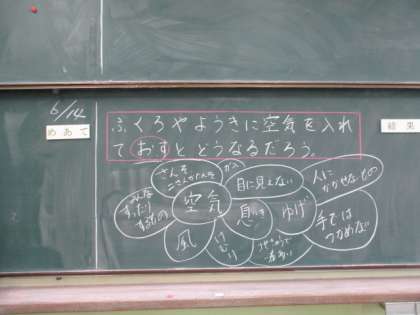 6/14
めあて
ふくろやようきに空気を入れ
ておすとどうなるだろう。
結果
さんそ
二さんかたんそ
目に見えない
人に
かかせないもの
みんな
すったり
するもの
空気
息
ゆげ
手では
つかめない
風
けむり